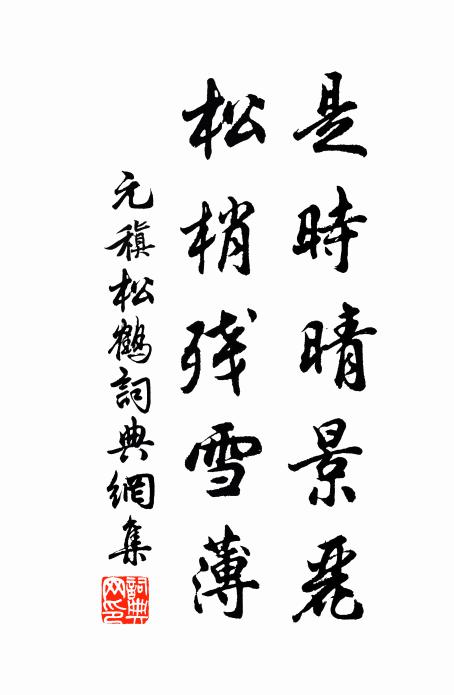 是時晴景麗
松梢残雪薄
元稹松鶴詞典網集
詞典網印